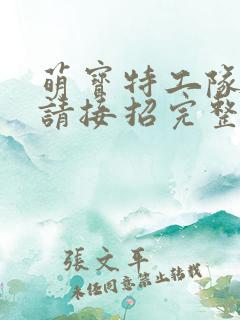 萌寶特工隊
請接招完整
張文平
未任同意禁止轉載